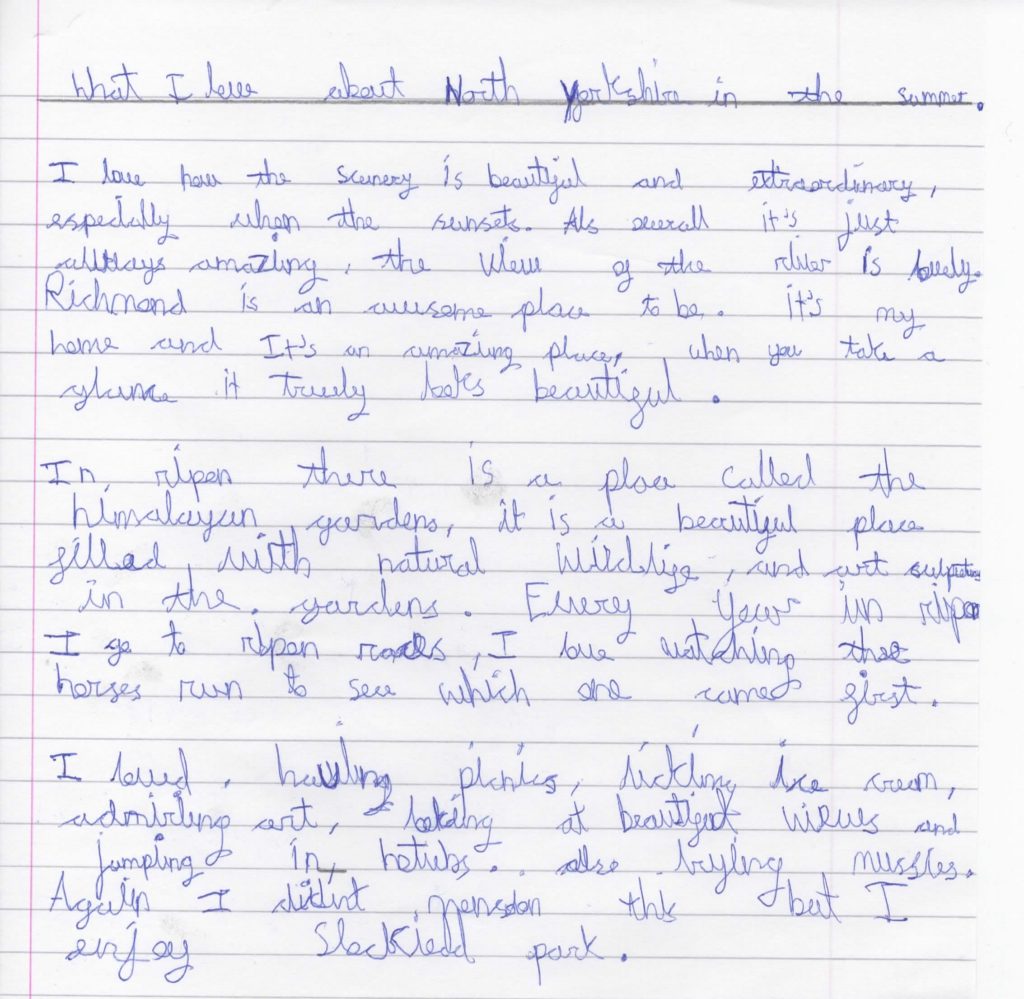 What I love about North Yorkshire in the summer.
I love how the scenery is beautiful and extraordinary,
especially when the sunsets. Als overall it's just
allways amazing, the view of the river is lovely.
Richmond is an awesome place to be. it's my
home and It's an amazing place, when you take a
glance it truely looks beautiful.
In, ripon there is a place called the
himalayan gardens, it is a beautiful place
filled with natural wildlife, and art
in the. gardens. Every year in ripon
I go to ripon races, I love watching the
horses run to see which one comes first.
I loved, having picnics, licking ice cream,
admiring art, looking at beautiful views and
jumping in, hotubs.. also trying mussles.
Again I didint mension this but I
enjoy park.